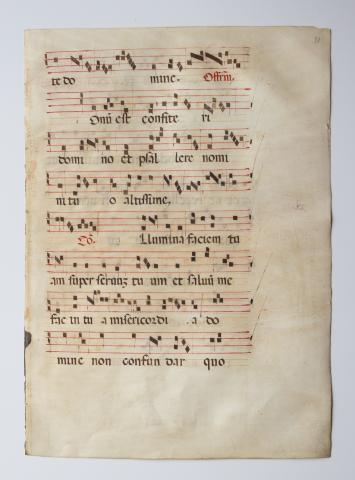 te do mine. Offert̄m.
Onū est confite ri
domi no et psal lere nomi
ni tu o altissime.
Cō. Llumina faciem tu
am super seruū tu um et saluū me
fac in tu a misericordi a do
mine non confun dar quo